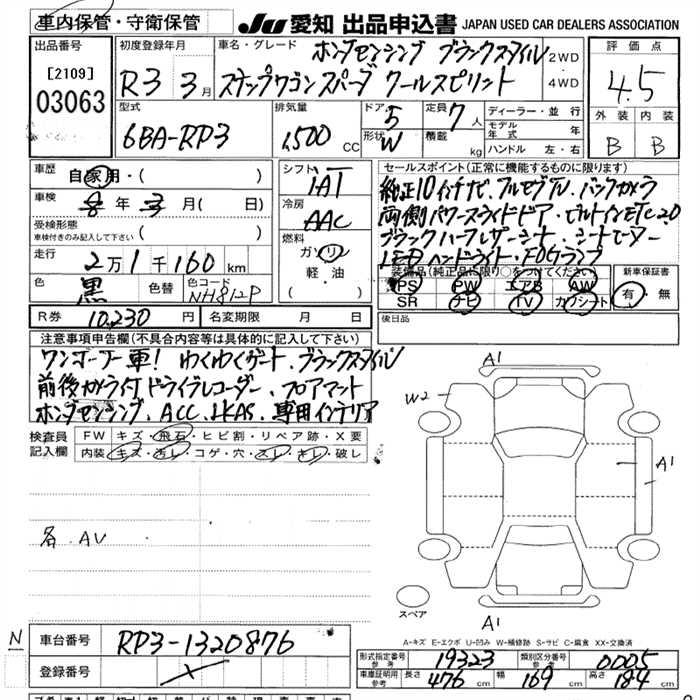 車内保管・守衛保管
JU 愛知 出品申込書 JAPAN USED CAR DEALERS ASSOCIATION
出品番号
[2109]
03063
初度登録年月
R3 3月
車名・グレード
ホンダセンシング ブラックスタイル
ステップワゴンスパーダ クールスピリット
2WD
4WD
評価点
4.5
外装 内装
B B
型式
6BA-RP3
排気量
1,500 cc
ドア 5
形状 W
定員 7人
積載 kg
ディーラー・並行
モデル年式 年
ハンドル 左・右
車歴
自家用・( )
車検
8年 3月( 日)
受検形態
車検付きのみ記入して下さい ( )
走行
2万1千160km
色
黒
色替
色コード
NH812P
シフト
IAT
冷房
AAC
燃料
ガソリン
軽・油
( )
セールスポイント(正常に機能するものに限ります)
純正10インチナビ、フルセグTV、バックカメラ
両側パワースライドドア・ビルトインETC2.0
ブラックハーフレザーシート、シートヒーター
LEDヘッドライト・FOGランプ
装備品(純正品に限り○をつけてください)
PS PW エアB AW
SR ナビ TV カワシート
新車保証書
有・無
R券 10,230円
名変期限 月 日
後日品
注意事項申告欄(不具合内容等は具体的に記入して下さい)
ワンオーナー車! わくわくゲート、ブラックスタイル
前後カメラ付ドライブレコーダー、フロアマット
ホンダセンシング、ACC、LKAS、専用インテリア
検査員記入欄
FW キズ・飛石・ヒビ割・リペア跡・X要
内装 キズ・汚レ・コゲ・穴・スレ・キレ・破レ
各 AV
A1
W2
A1
A1
スペア
A-キズ E-エクボ U-凹み W-補修跡 S-サビ C-腐食 XX-交換済
N
車台番号
RP3-1320876
登録番号
形式指定番号 参考 19323
類別区分番号 参考 0005
車庫証明用 参考 長さ 476cm 幅 169cm 高さ 184cm